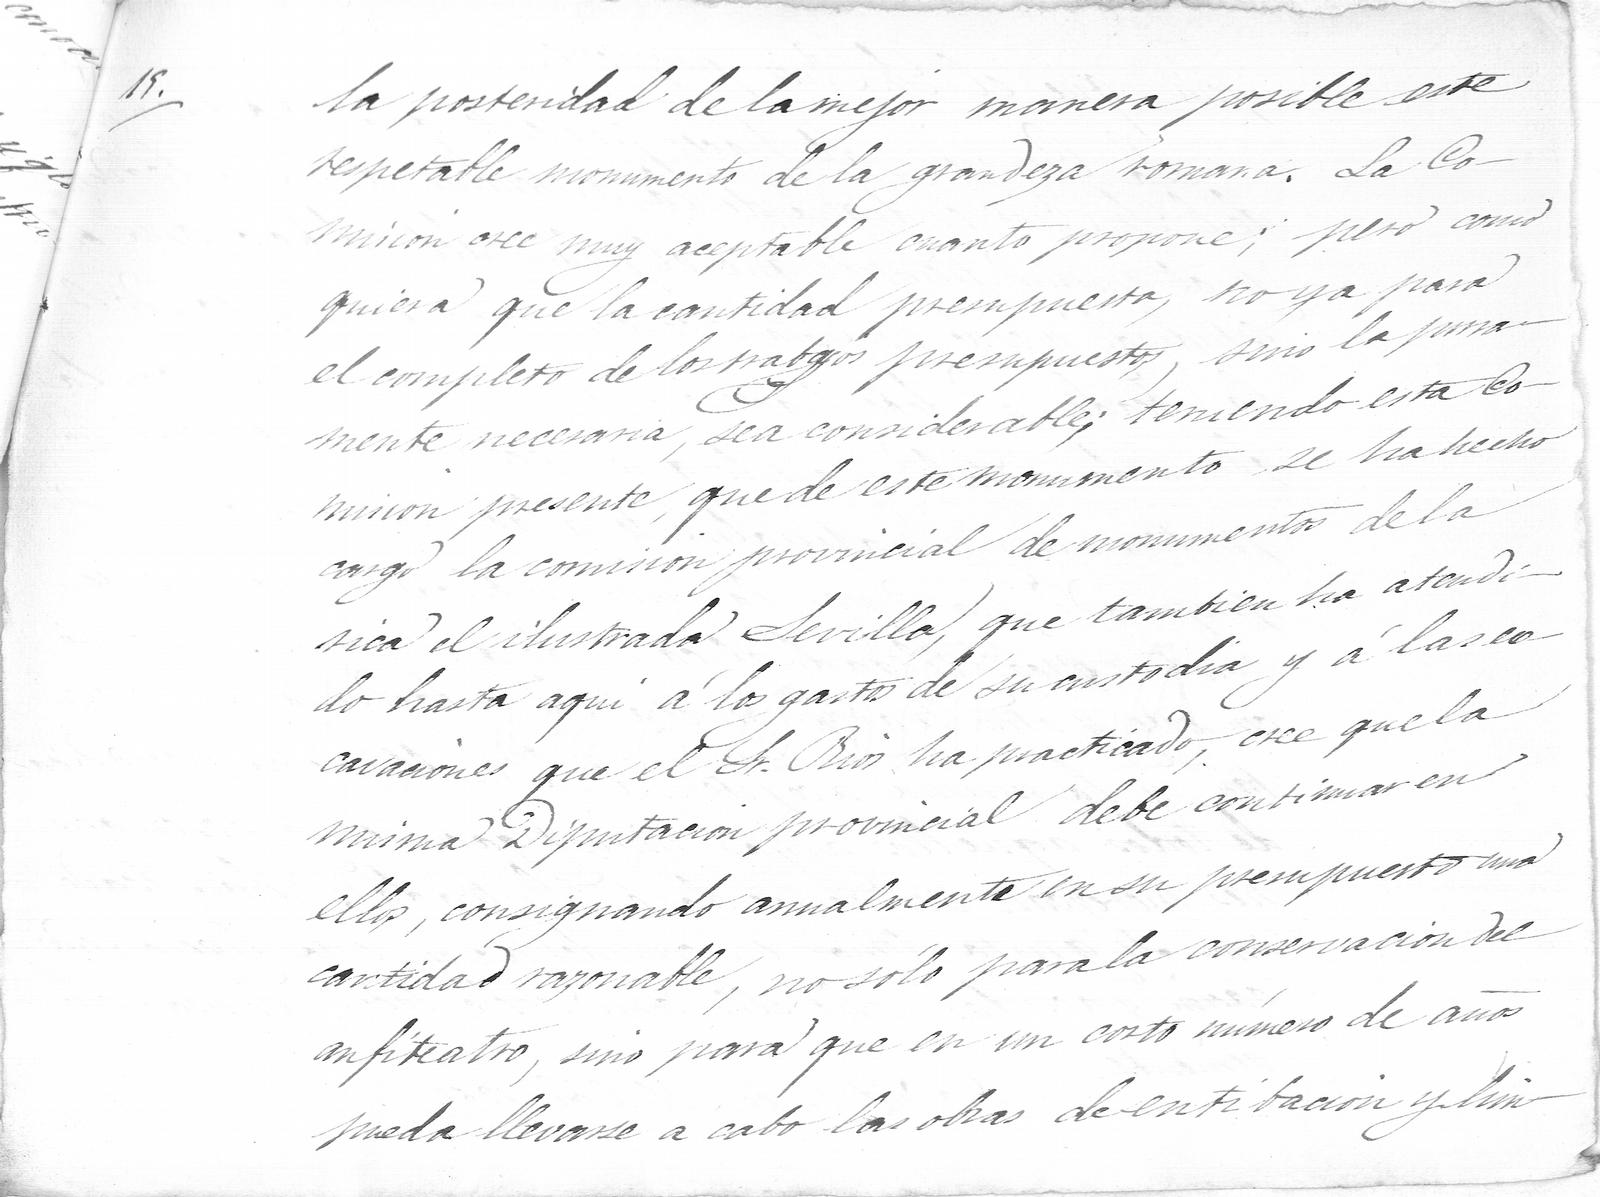 15.
la posteridad de la mejor manera posible este
respetable monumento de la grandeza romana. La Co-
mision cree muy aceptable cuanto propone; pero como
quiera que la cantidad presupuesta, no ya para
el completo de los trabajos presupuestos, sino la pura-
mente necesaria, sea considerable; teniendo esta Co-
mision presente, que de este monumento se ha hecho
cargo la comision provincial de monumentos de la
rica é ilustrada Sevilla, que tambien ha atendi-
do hasta aqui á los gastos de su custodia y á las es-
cavaciones que el Sr. Rios ha practicado, cree que la
misma Diputacion provincial debe continuar en
ellos, consignando anualmente en su presupuesto una
cantidad razonable, no sólo para la conservacion del
anfiteatro, sino para que en un corto número de años
pueda llevarse a cabo las obras de entibacion y lim-